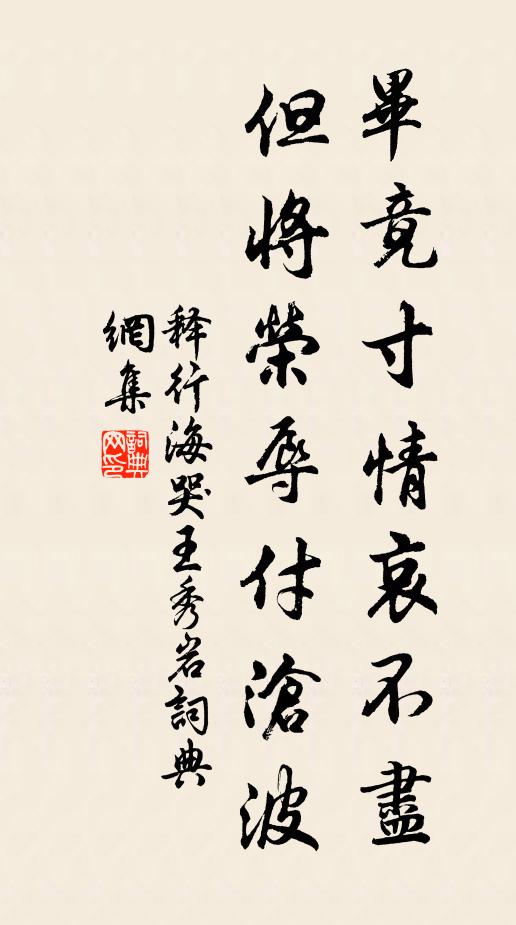 畢竟寸情哀不盡
但將榮辱付滄波
释行海哭王秀岩詞典
網集
詞典網印